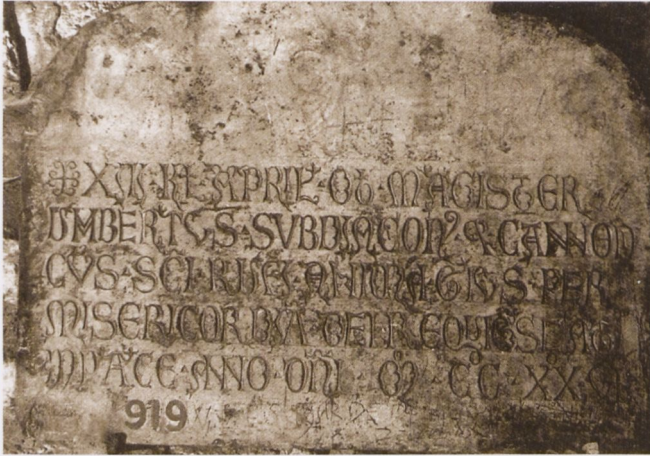 ✤ XII · KL · APRIL · OB · MAGISTER
UMBERTUS · SUBDIACON' · & CANNONI
CUS · SCI · RUFI · ANIMA · EIUS · PER
MISERICORDIA · DEI · REQUIESCAT
IN PACE · ANNO · DNI · M · CC · XX ·
919